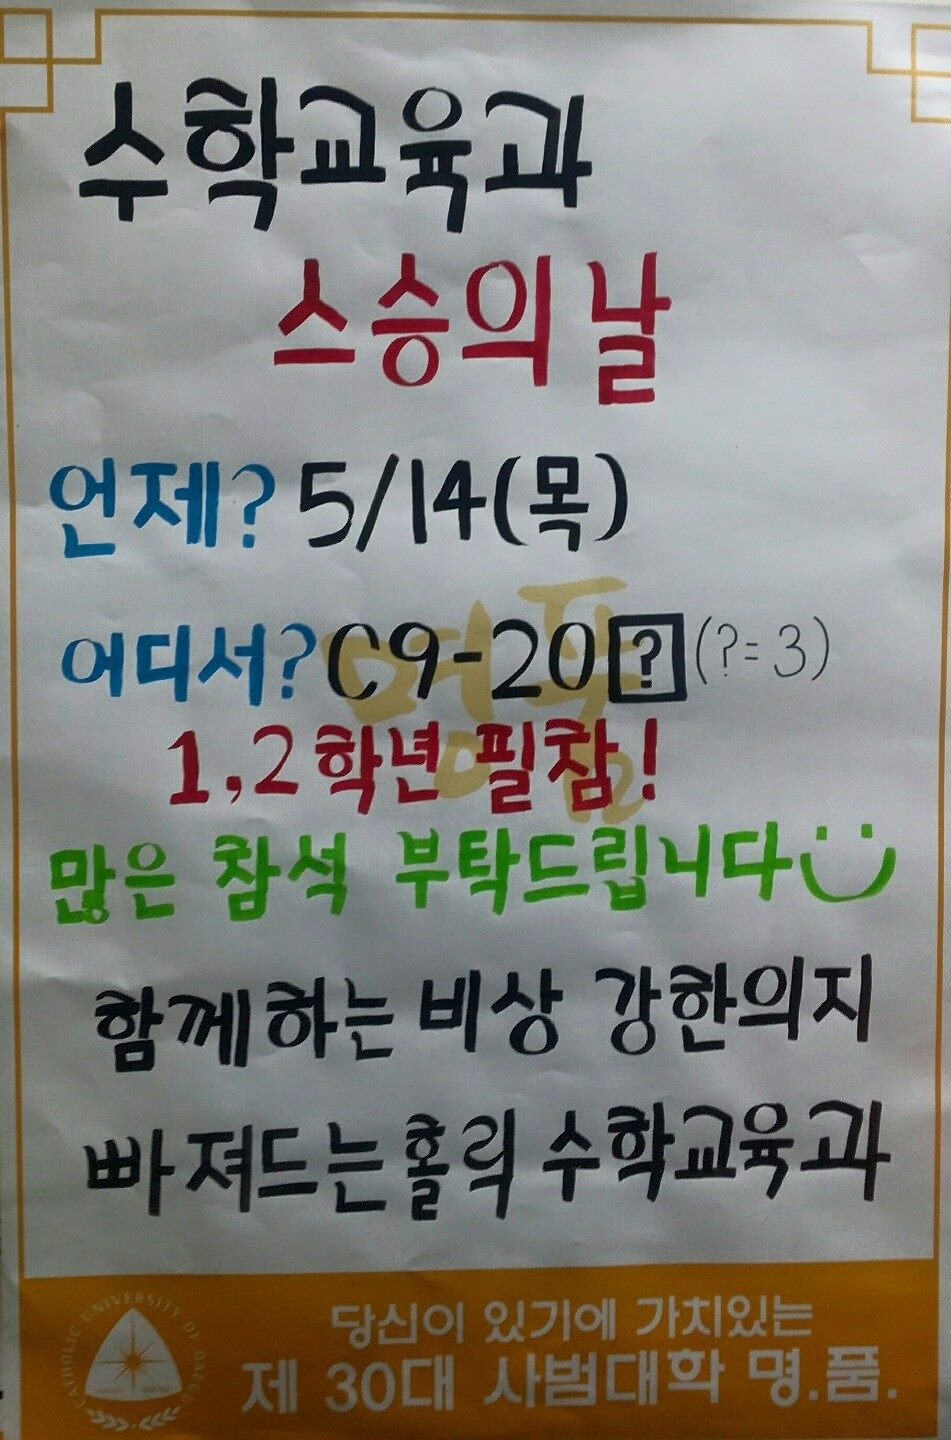 수학교육과
스승의 날
언제? 5/14(목)
어디서? C9-20? (?=3)
1,2학년 필참!
많은 참석 부탁드립니다
함께하는 비상 강한의지
빠져드는 홀릭 수학교육과
명품
CATHOLIC UNIVERSITY OF DAEGU
당신이 있기에 가치있는
제 30대 사범대학 명.품.